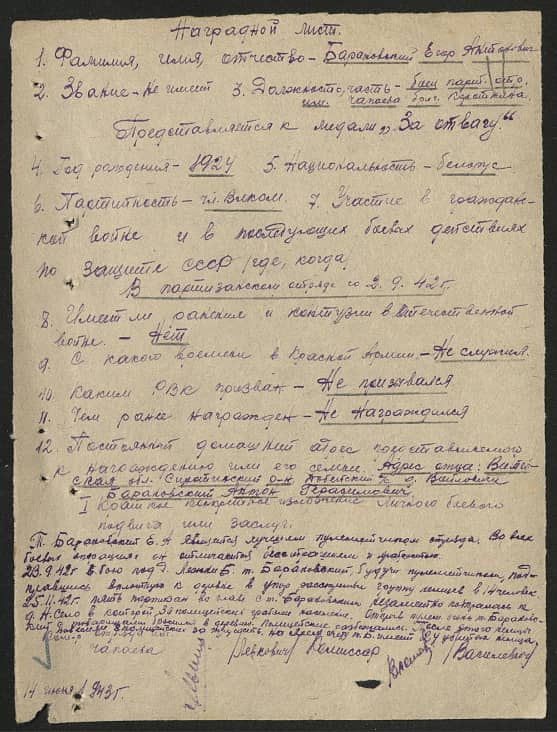 Наградной лист.
1. Фамилия, имя, отчество – Барановский Егор Антонович
2. Звание – Не имеет 3. Должность, часть – боец парт. отр.
им. Чапаева
Представляется к медали „За отвагу“
4. Год рождения – 1924 5. Национальность – белорус
6. Партийность – чл. ВЛКСМ. 7. Участие в граждан-
ской войне и в последующих боевых действиях
по защите СССР (где, когда)
В партизанском отряде со 2.9.42г.
8. Имеет ли ранения и контузии в Отечественной
войне. – Нет
9. С какого времени в Красной Армии. – Не служил.
10. Каким РВК призван – Не призывался
11. Чем ранее награжден – Не Награждался
12. Постоянный домашний адрес представляемого
к награждению или его семьи. Адрес отца: Витеб-
ская обл. Сиротинский р-н с/с д.
Барановский Антон Герасимович.
I Краткое конкретное изложение личного боевого
подвига или заслуг.
Т. Барановский Е. А является лучшим пулеметчиком отряда. Во всех
боевых операциях он отличается бесстрашием и
23.9.42г в бою под д. т. Барановский, будучи пулеметчиком, под-
вплотную к деревне в упор расстрелял группу немцев в 14 человек
25.11.42г. пять партизан во главе с т. Барановским незаметно
д. Село в которой 30 полицейских грабили население. Открыв
с товарищами в деревню. Полицейские
Чапаева /Левкович/ Комиссар /Василевич/
14 июня 1943г.